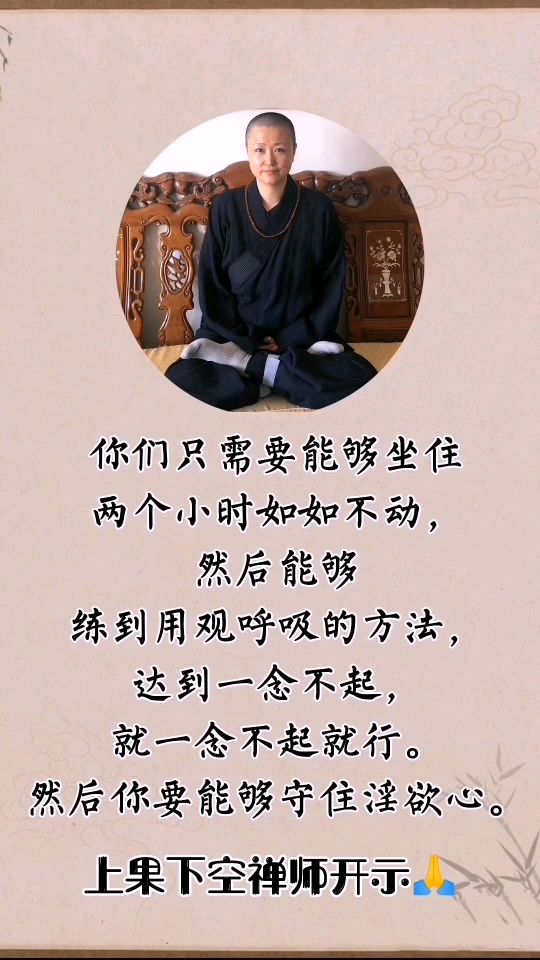 你们只需要能够坐住
两个小时如如不动，
然后能够
练到用观呼吸的方法，
达到一念不起，
就一念不起就行。
然后你要能够守住淫欲心。
上果下空禅师开示🙏